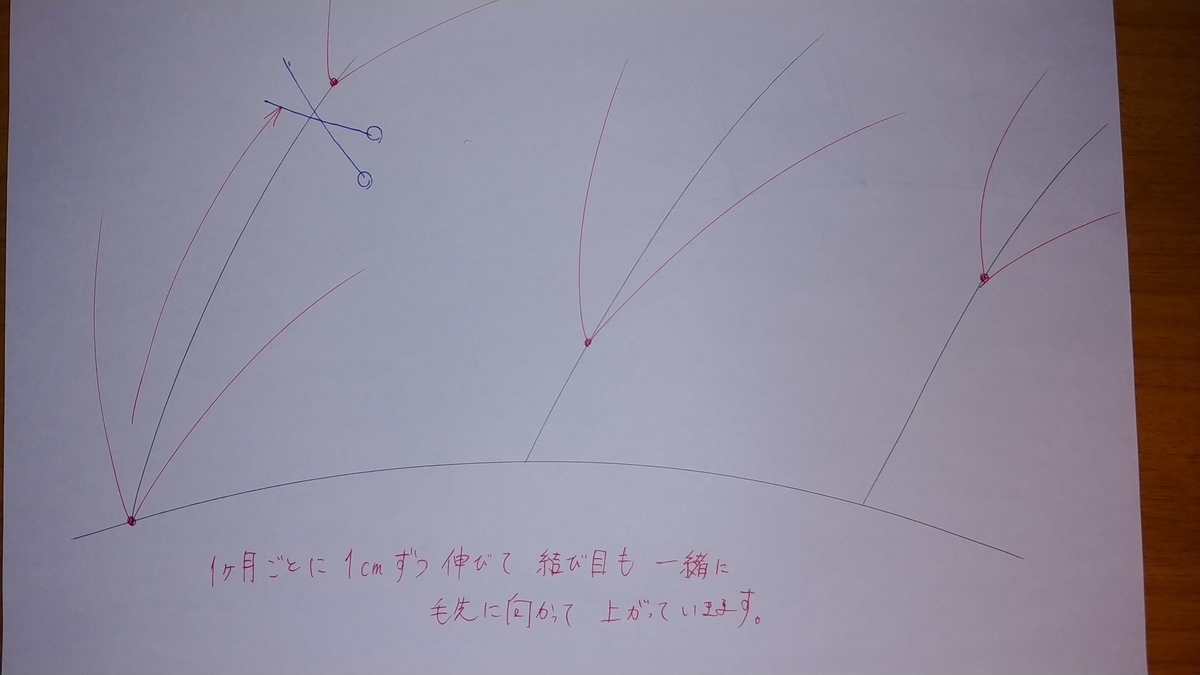 1ヶ月ごとに 1cmずつ 伸びて 結び目も 一緒に
毛先に向かって 上がっています。